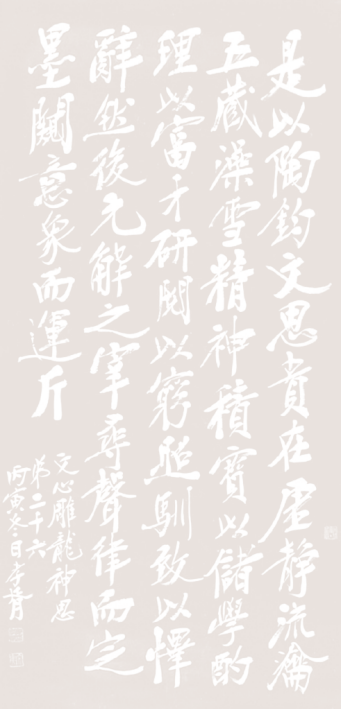 是以陶鈞文思貴在虛靜流瀹
五藏澡雪精神積寶以儲學酌
理以富才研閱以窮照馴致以懌
辭然後元解之宰尋聲律而定
墨闚意象而運斤
文心雕龍神思
第二十六
丙寅冬日李